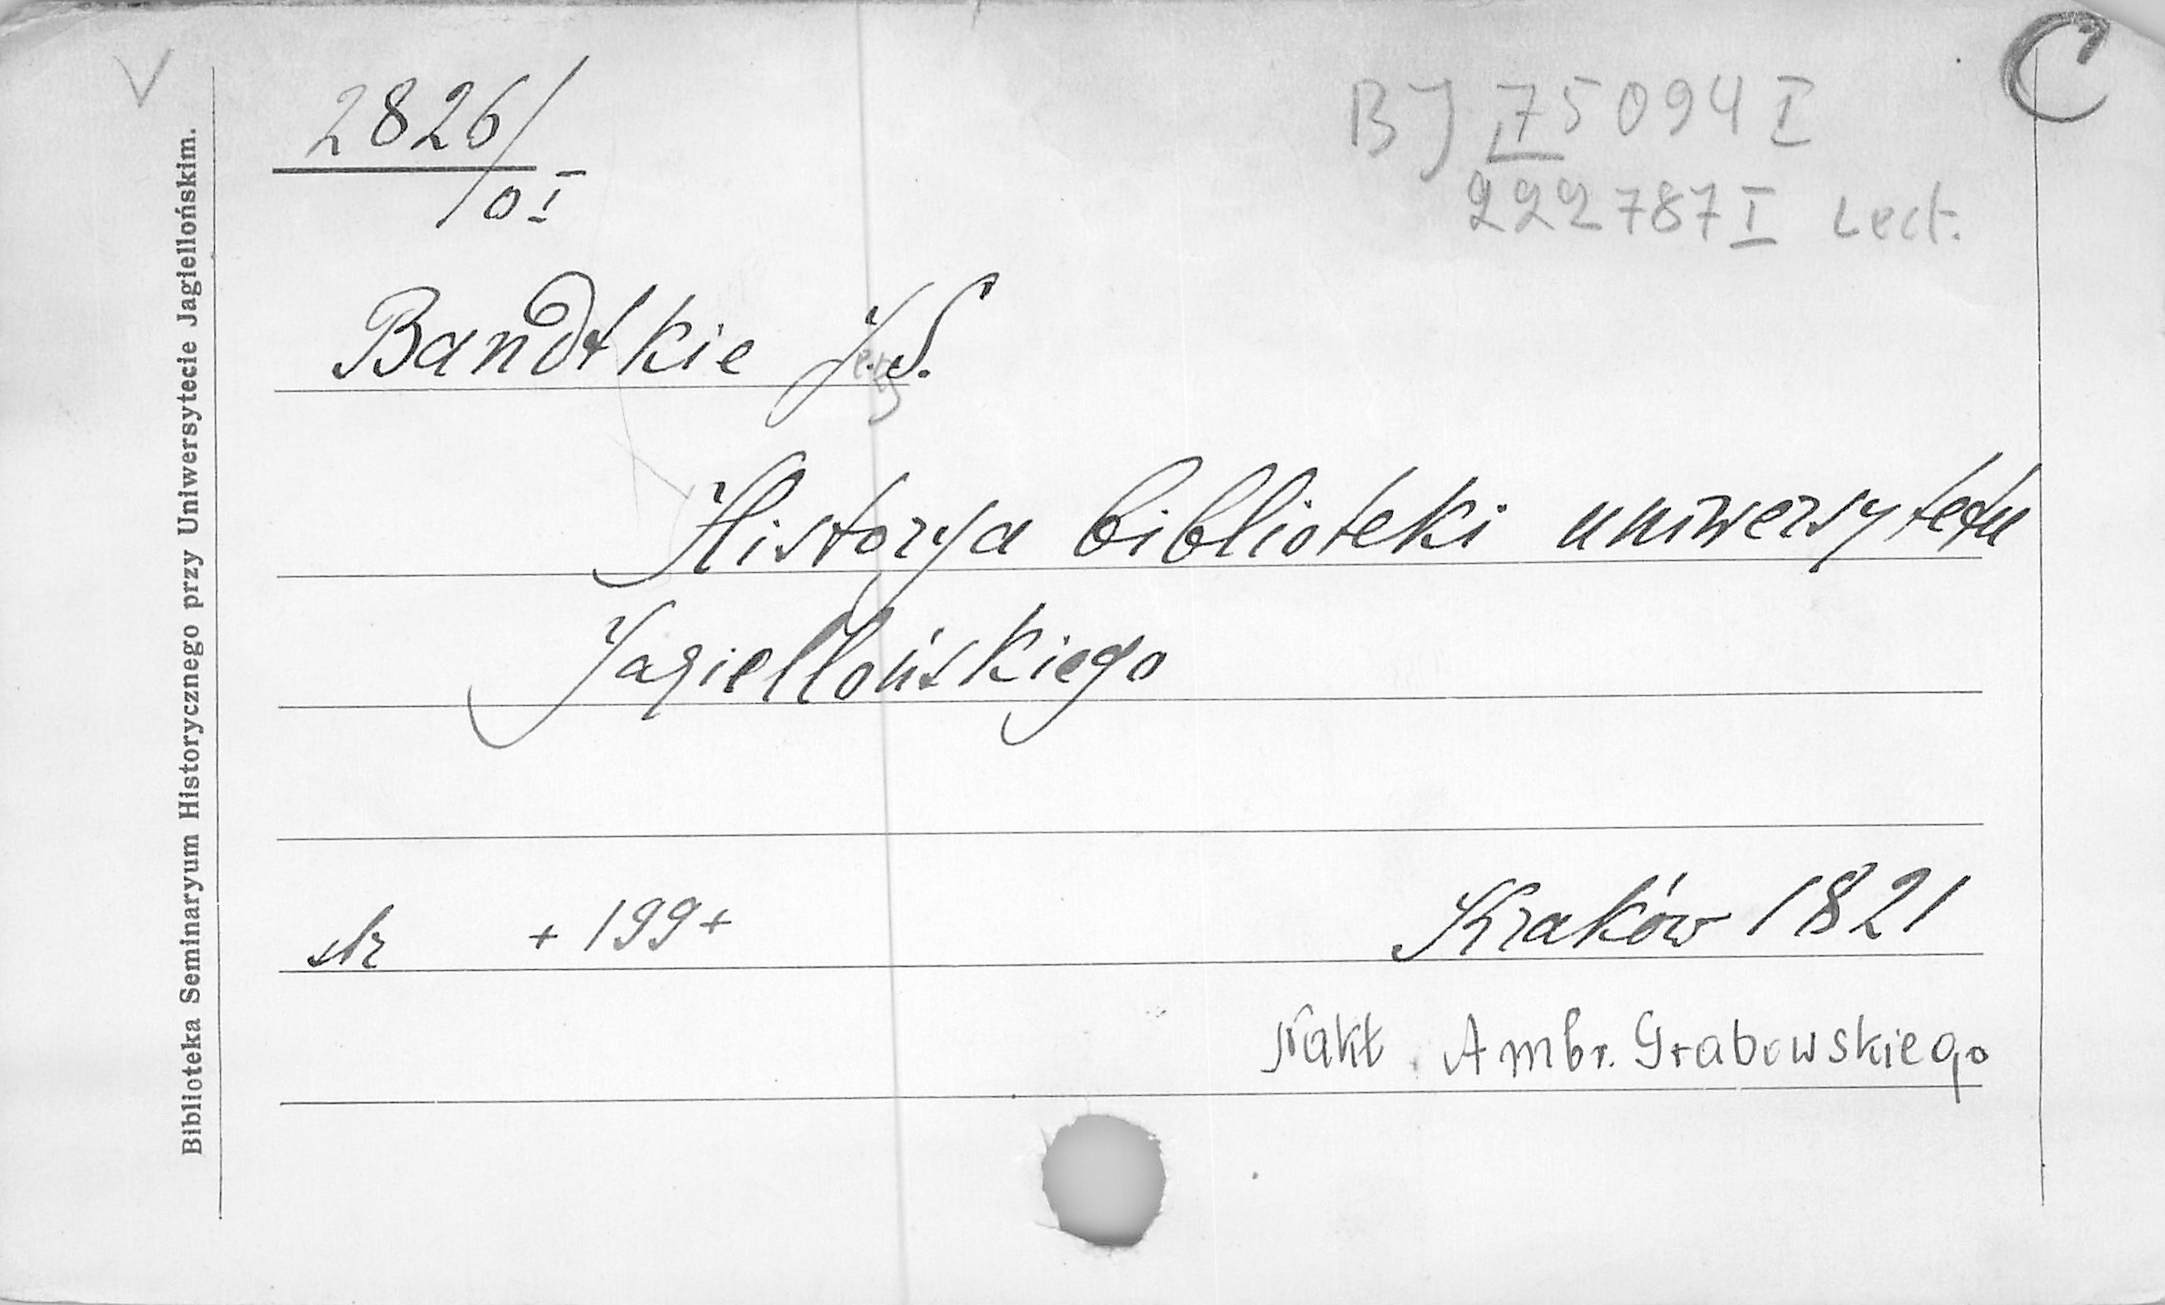 V
C
2826/
BJ 75094 I
0 I
222787 I Lect.
Bandtkie J. S.
Jerzy
Historya biblioteki uniwersytetu
Jagiellońskiego
str + 199 +
Kraków 1821
Nakł. Ambr. Grabowskiego
Biblioteka Seminaryum Historycznego przy Uniwersytecie Jagiellońskim.